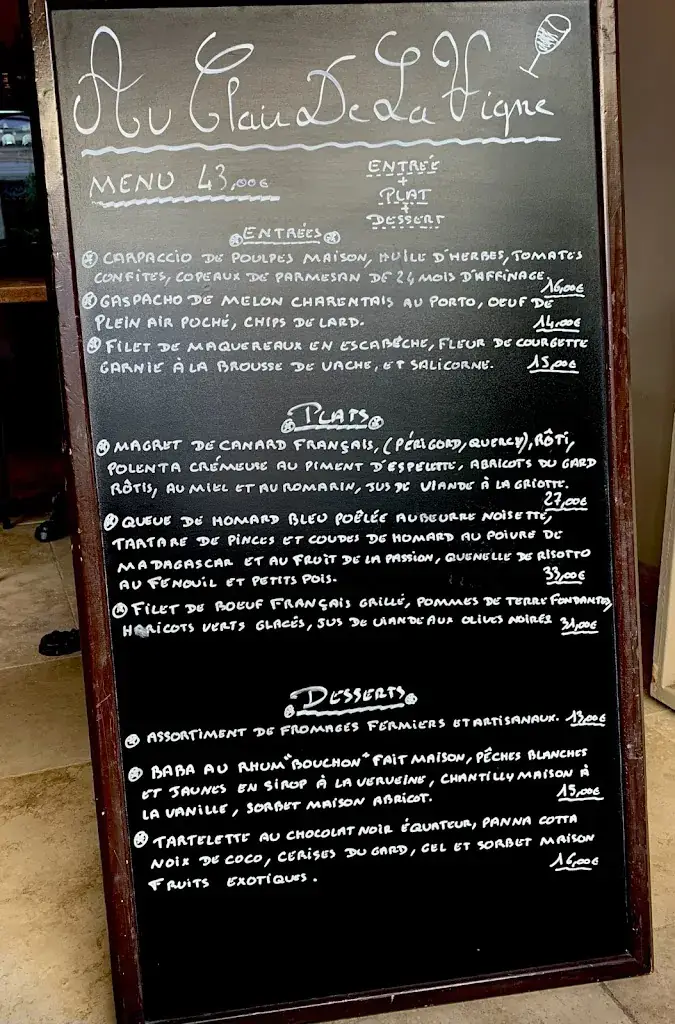 Au Clair De La Vigne
MENU 43,00€
ENTRÉE
+
PLAT
+
DESSERT
ENTRÉES
CARPACCIO DE POULPES MAISON, HUILE D'HERBES, TOMATES
CONFITES, COPEAUX DE PARMESAN DE 24 MOIS D'AFFINAGE.
16,00€
GASPACHO DE MELON CHARENTAIS AU PORTO, OEUF DE
PLEIN AIR POCHÉ, CHIPS DE LARD. 14,00€
FILET DE MAQUEREAUX EN ESCABÈCHE, FLEUR DE COURGETTE
GARNIE À LA BROUSSE DE VACHE, ET SALICORNE. 15,00€
PLATS
MAGRET DE CANARD FRANÇAIS, (PÉRIGORD, QUERCY), RÔTI,
POLENTA CRÉMEUSE AU PIMENT D'ESPELETTE, ABRICOTS DU GARD
RÔTIS, AU MIEL ET AU ROMARIN, JUS DE VIANDE À LA GRIOTTE.
27,00€
QUEUE DE HOMARD BLEU POÊLÉE AU BEURRE NOISETTE,
TARTARE DE PINCES ET COUDES DE HOMARD AU POIVRE DE
MADAGASCAR ET AU FRUIT DE LA PASSION, QUENELLE DE RISOTTO
AU FENOUIL ET PETITS POIS. 33,00€
FILET DE BOEUF FRANÇAIS GRILLÉ, POMMES DE TERRE FONDANTES,
HARICOTS VERTS GLACÉS, JUS DE VIANDE AUX OLIVES NOIRES 31,00€
DESSERTS
ASSORTIMENT DE FROMAGES FERMIERS ET ARTISANAUX. 13,00€
BABA AU RHUM "BOUCHON" FAIT MAISON, PÊCHES BLANCHES
ET JAUNES EN SIROP À LA VERVEINE, CHANTILLY MAISON À
LA VANILLE, SORBET MAISON ABRICOT. 15,00€
TARTELETTE AU CHOCOLAT NOIR ÉQUATEUR, PANNA COTTA
NOIX DE COCO, CERISES DU GARD, GEL ET SORBET MAISON
FRUITS EXOTIQUES. 16,00€